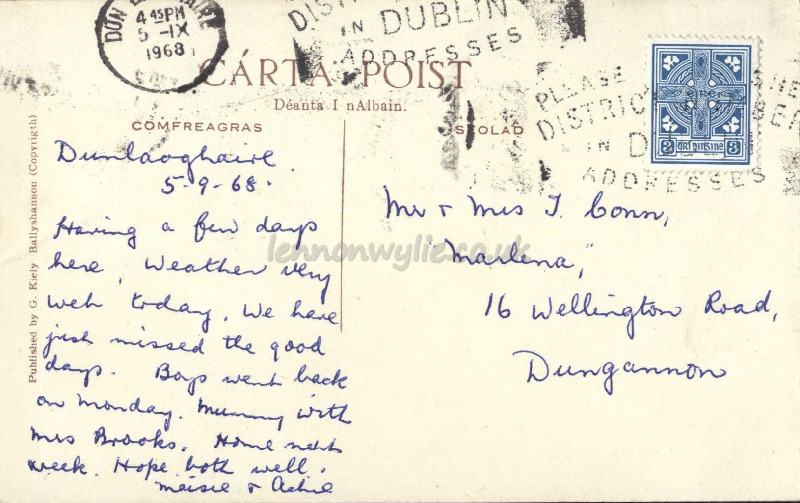 DUN LAOGHAIRE
4 45PM
5 -IX
1968
IN DUBLIN
ADDRESSES
CÁRTA POIST
Déanta I nAlbain.
COMFREAGRAS
SEOLAD
PLEASE
DISTRICT
IN D
ADDRESSES
3 éire pinsine 3
Published by G. Kiely Ballyshannon (Copyrigth)
Dunlaoghaire
5-9-68.
Having a few days
here, Weather very
wet today. We have
just missed the good
days. Boys went back
on Monday. Mummy with
Mrs Brooks. Home next
week. Hope both well.
Maisie &
Mr & Mrs T. Conn,
"Marlena,"
16 Wellington Road,
Dungannon
lennonwylie.co.uk